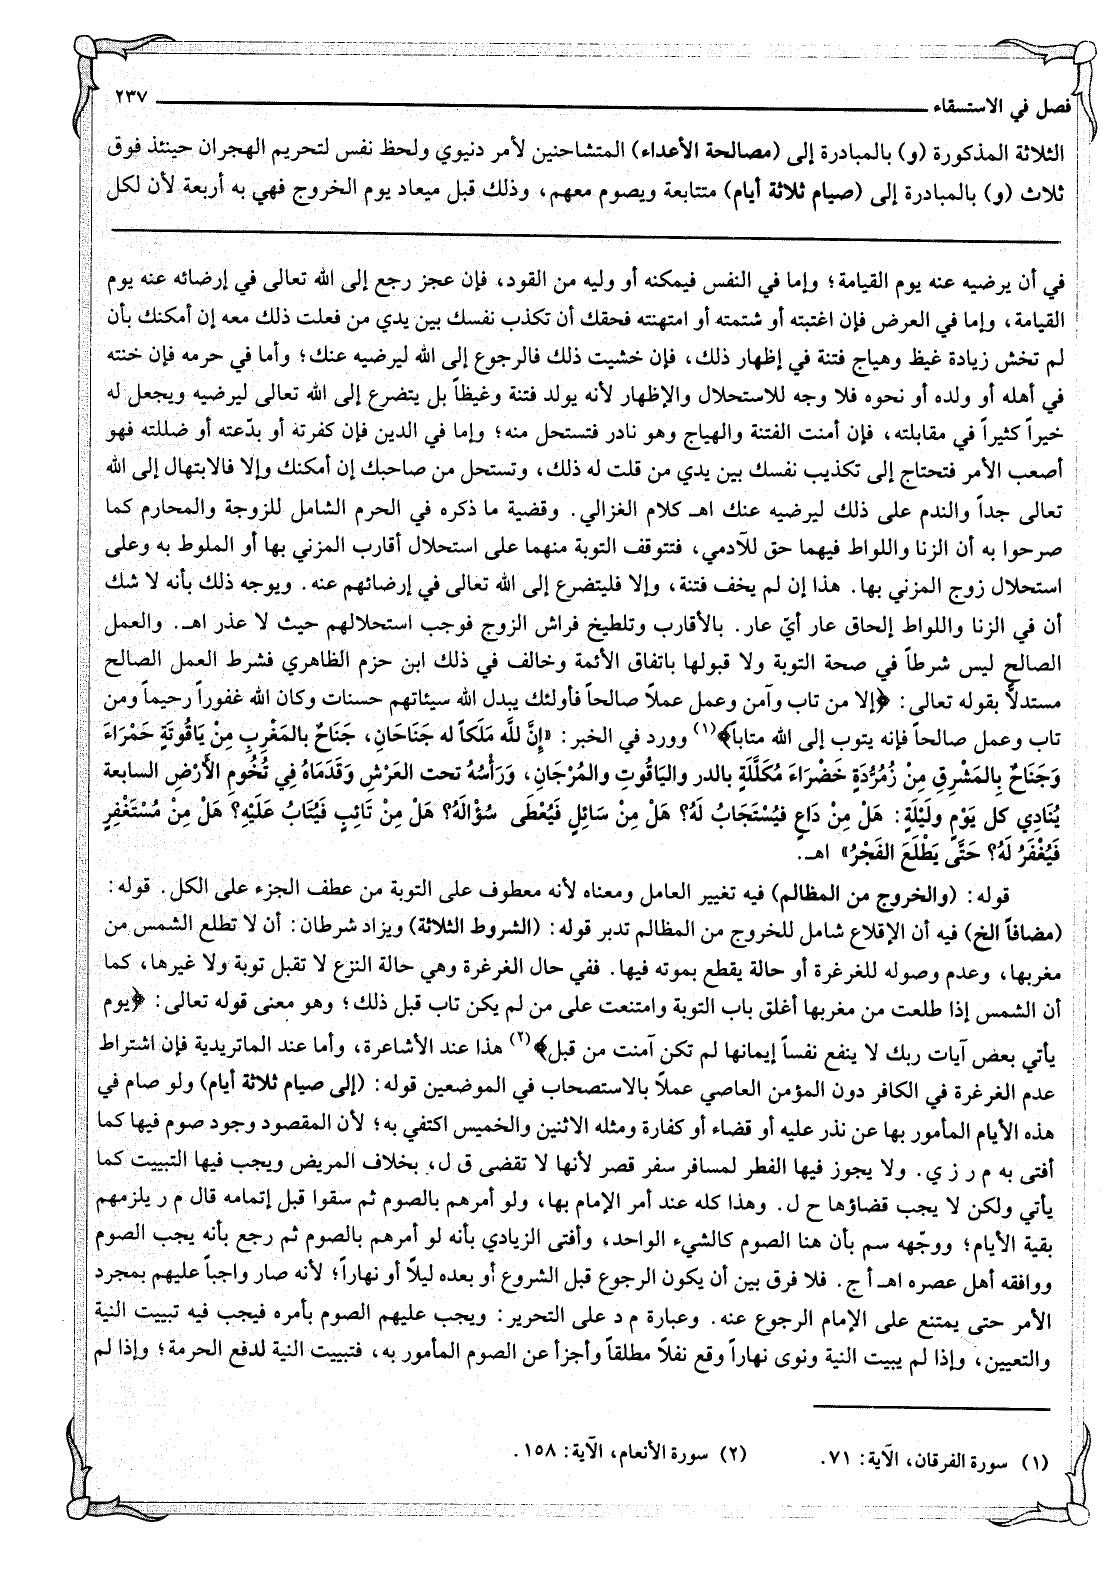 فصل في الاستسقاء ٢٣٧
الثلاثة المذكورة (و) بالمبادرة إلى (مصالحة الأعداء) المتشاحنين لأمر دنيوي ولحظ نفس لتحريم الهجران حينئذ فوق
ثلاث (و) بالمبادرة إلى (صيام ثلاثة أيام) متتابعة ويصوم معهم، وذلك قبل ميعاد يوم الخروج فهي به أربعة لأن لكل
في أن يرضيه عنه يوم القيامة؛ وإما في النفس فيمكنه أو وليه من القود، فإن عجز رجع إلى الله تعالى في إرضائه عنه يوم
القيامة، وإما في العرض فإن اغتبته أو شتمته أو امتهنته فحقك أن تكذب نفسك بين يدي من فعلت ذلك معه إن أمكنك بأن
لم تخش زيادة غيظ وهياج فتنة في إظهار ذلك، فإن خشيت ذلك فالرجوع إلى الله ليرضيه عنك؛ وأما في حرمه فإن خنته
في أهله أو ولده أو نحوه فلا وجه للاستحلال والإظهار لأنه يولد فتنة وغيظاً بل يتضرع إلى الله تعالى ليرضيه ويجعل له
خيراً كثيراً في مقابلته، فإن أمنت الفتنة والهياج وهو نادر فتستحل منه؛ وإما في الدين فإن كفرته أو بدّعته أو ضللته فهو
أصعب الأمر فتحتاج إلى تكذيب نفسك بين يدي من قلت له ذلك، وتستحل من صاحبك إن أمكنك وإلا فالابتهال إلى الله
تعالى جداً والندم على ذلك ليرضيه عنك اهـ كلام الغزالي. وقضية ما ذكره في الحرم الشامل للزوجة والمحارم كما
صرحوا به أن الزنا واللواط فيهما حق للآدمي، فتتوقف التوبة منهما على استحلال أقارب المزني بها أو الملوط به وعلى
استحلال زوج المزني بها. هذا إن لم يخف فتنة، وإلا فليتضرع إلى الله تعالى في إرضائهم عنه. ويوجه ذلك بأنه لا شك
أن في الزنا واللواط إلحاق عار أيّ عار. بالأقارب وتلطيخ فراش الزوج فوجب استحلالهم حيث لا عذر اهـ. والعمل
الصالح ليس شرطاً في صحة التوبة ولا قبولها باتفاق الأئمة وخالف في ذلك ابن حزم الظاهري فشرط العمل الصالح
مستدلاً بقوله تعالى: ﴿إلا من تاب وآمن وعمل عملاً صالحاً فأولئك يبدل الله سيئاتهم حسنات وكان الله غفوراً رحيماً ومن
تاب وعمل صالحاً فإنه يتوب إلى الله متاباً﴾(١) وورد في الخبر: «إِنَّ للَّه مَلَكاً له جَنَاحَان، جَنَاحٌ بالمَغْربِ مِنْ يَاقُوتَةٍ حَمْرَاءَ
وَجَنَاحٌ بِالمَشْرِقِ مِنْ زُمُرُّدَةٍ خَضْرَاءَ مُكَلَّلَةٍ بالدر والیَاقُوتِ والمُرْجَانِ، وَرَأْسُهُ تحت العَرْشِ وَقَدَمَاهُ فِي تُخُومِ الأَرْضِ السابعة
يُنَادِي كل يَوْمٍ ولَيْلَةٍ: هَلْ مِنْ دَاعٍ فَيُسْتَجَابُ لَهُ؟ هَلْ مِنْ سَائِلٍ فَيُعْطَى سُؤَالَهُ؟ هَلْ مِنْ تَائِبٍ فَيُتَابُ عَلَيْهِ؟ هَلْ مِنْ مُسْتَغْفِرٍ
فَيُغْفَرُ لَهُ؟ حَتَّى يَطْلَعَ الفَجْرُ» اهـ.
قوله: (والخروج من المظالم) فيه تغيير العامل ومعناه لأنه معطوف على التوبة من عطف الجزء على الكل. قوله:
(مضافاً الخ) فيه أن الإقلاع شامل للخروج من المظالم تدبر قوله: (الشروط الثلاثة) ويزاد شرطان: أن لا تطلع الشمس من
مغربها، وعدم وصوله للغرغرة أو حالة يقطع بموته فيها. ففي حال الغرغرة وهي حالة النزع لا تقبل توبة ولا غيرها، كما
أن الشمس إذا طلعت من مغربها أغلق باب التوبة وامتنعت على من لم يكن تاب قبل ذلك؛ وهو معنى قوله تعالى: ﴿يوم
يأتي بعض آيات ربك لا ينفع نفساً إيمانها لم تكن آمنت من قبل﴾(٢) هذا عند الأشاعرة، وأما عند الماتريدية فإن اشتراط
عدم الغرغرة في الكافر دون المؤمن العاصي عملاً بالاستصحاب في الموضعين قوله: (إلى صيام ثلاثة أيام) ولو صام في
هذه الأيام المأمور بها عن نذر عليه أو قضاء أو كفارة ومثله الاثنين والخميس اكتفي به؛ لأن المقصود وجود صوم فيها كما
أفتى به م ر ز ي. ولا يجوز فيها الفطر لمسافر سفر قصر لأنها لا تقضى ق ل، بخلاف المريض ويجب فيها التبييت كما
يأتي ولكن لا يجب قضاؤها ح ل. وهذا كله عند أمر الإمام بها، ولو أمرهم بالصوم ثم سقوا قبل إتمامه قال م ر يلزمهم
بقية الأيام؛ ووجّهه سم بأن هنا الصوم كالشيء الواحد، وأفتى الزيادي بأنه لو أمرهم بالصوم ثم رجع بأنه يجب الصوم
ووافقه أهل عصره اهـ أ ج. فلا فرق بين أن يكون الرجوع قبل الشروع أو بعده ليلاً أو نهاراً؛ لأنه صار واجباً عليهم بمجرد
الأمر حتى يمتنع على الإمام الرجوع عنه. وعبارة م د على التحرير: ويجب عليهم الصوم بأمره فيجب فيه تبييت النية
والتعيين، وإذا لم يبيت النية ونوى نهاراً وقع نفلاً مطلقاً وأجزأ عن الصوم المأمور به، فتبييت النية لدفع الحرمة؛ وإذا لم
(١) سورة الفرقان، الآية: ٧١. (٢) سورة الأنعام، الآية: ١٥٨.